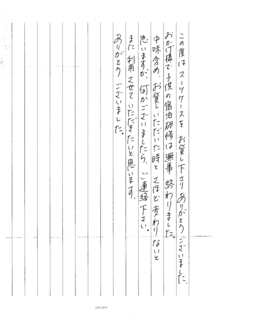 この度はスーツケースを、お貸し下さりありがとうございました。
おかげ様で子供の宿泊研修は無事終わりました。
中味含め、お貸しいただいた時とさほど変わりないと
思いますが、何かございましたら、ご連絡下さい。
また利用させていただきたいと思います。
ありがとうございました。